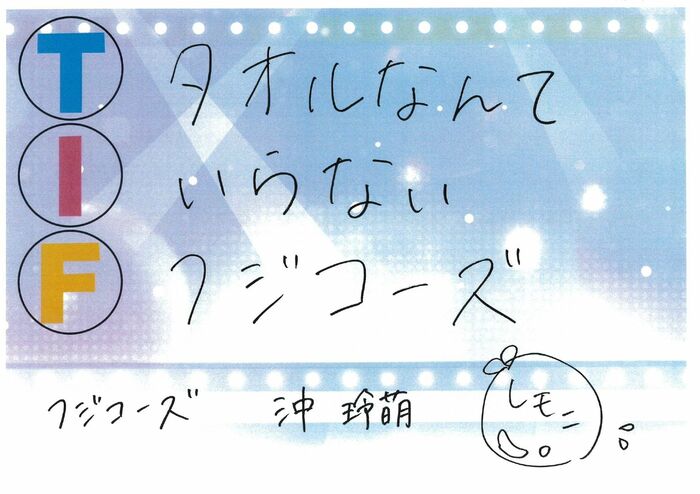 T タオルなんて
I いらない
F フジコーズ
フジコーズ 沖 玲萌 レモニ